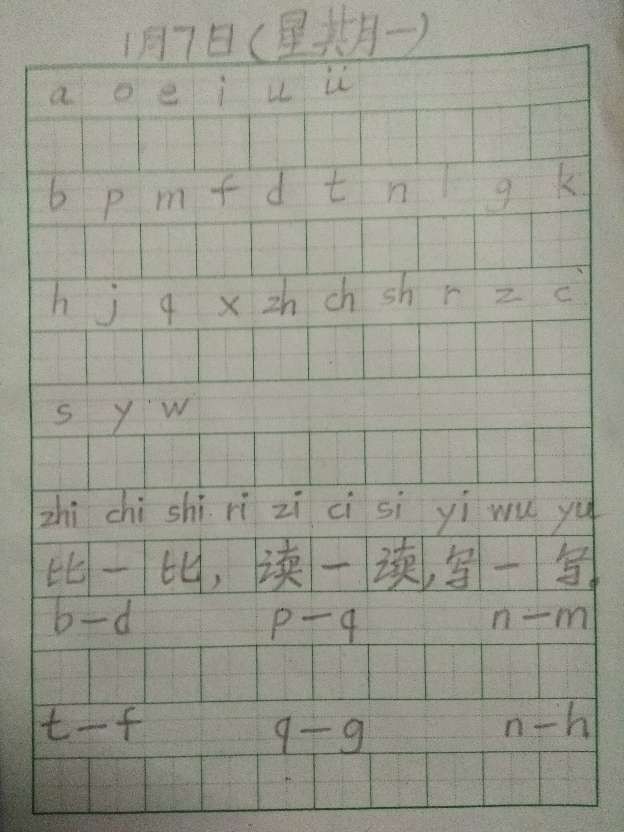 1月7日(星期一)
a o e i u ü
b p m f d t n l g k
h j q x zh ch sh r z c
s y w
zhi chi shi ri zi ci si yi wu yu
比一比,读一读,写一写。
b-d p-q n-m
t-f q-g n-h